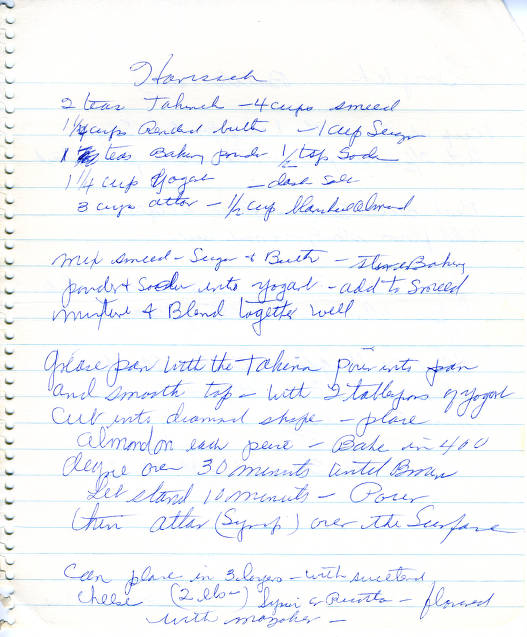 Harisseh
2 teas Tahineh - 4 cups smeed
1 1/4 cups Rended butte - 1 cup Sugar
1 teas Baking powder 1/2 tsp Soda
1 1/4 cup Yogart - dash salt
3 cups attar - 1/2 cup blanched Almond
Mix smeed - Sugar & Butte - Baking
powder & Soda into yogart - add to smeed
mixture & Blend together well
Grease pan with the Tahina Pour into pan
and smooth top - with 2 tablespoons of yogart
Cut into diamond shape - place
almond on each piece - Bake in 400
degree oven 30 minuts until Brown
Let stand 10 minuts - Pour
then attar (Syrup) over the Surface
Can place in 3 layers - with sweetend
cheese (2 lbs -) Syrian or Ricotta - flavored
with mazaher -